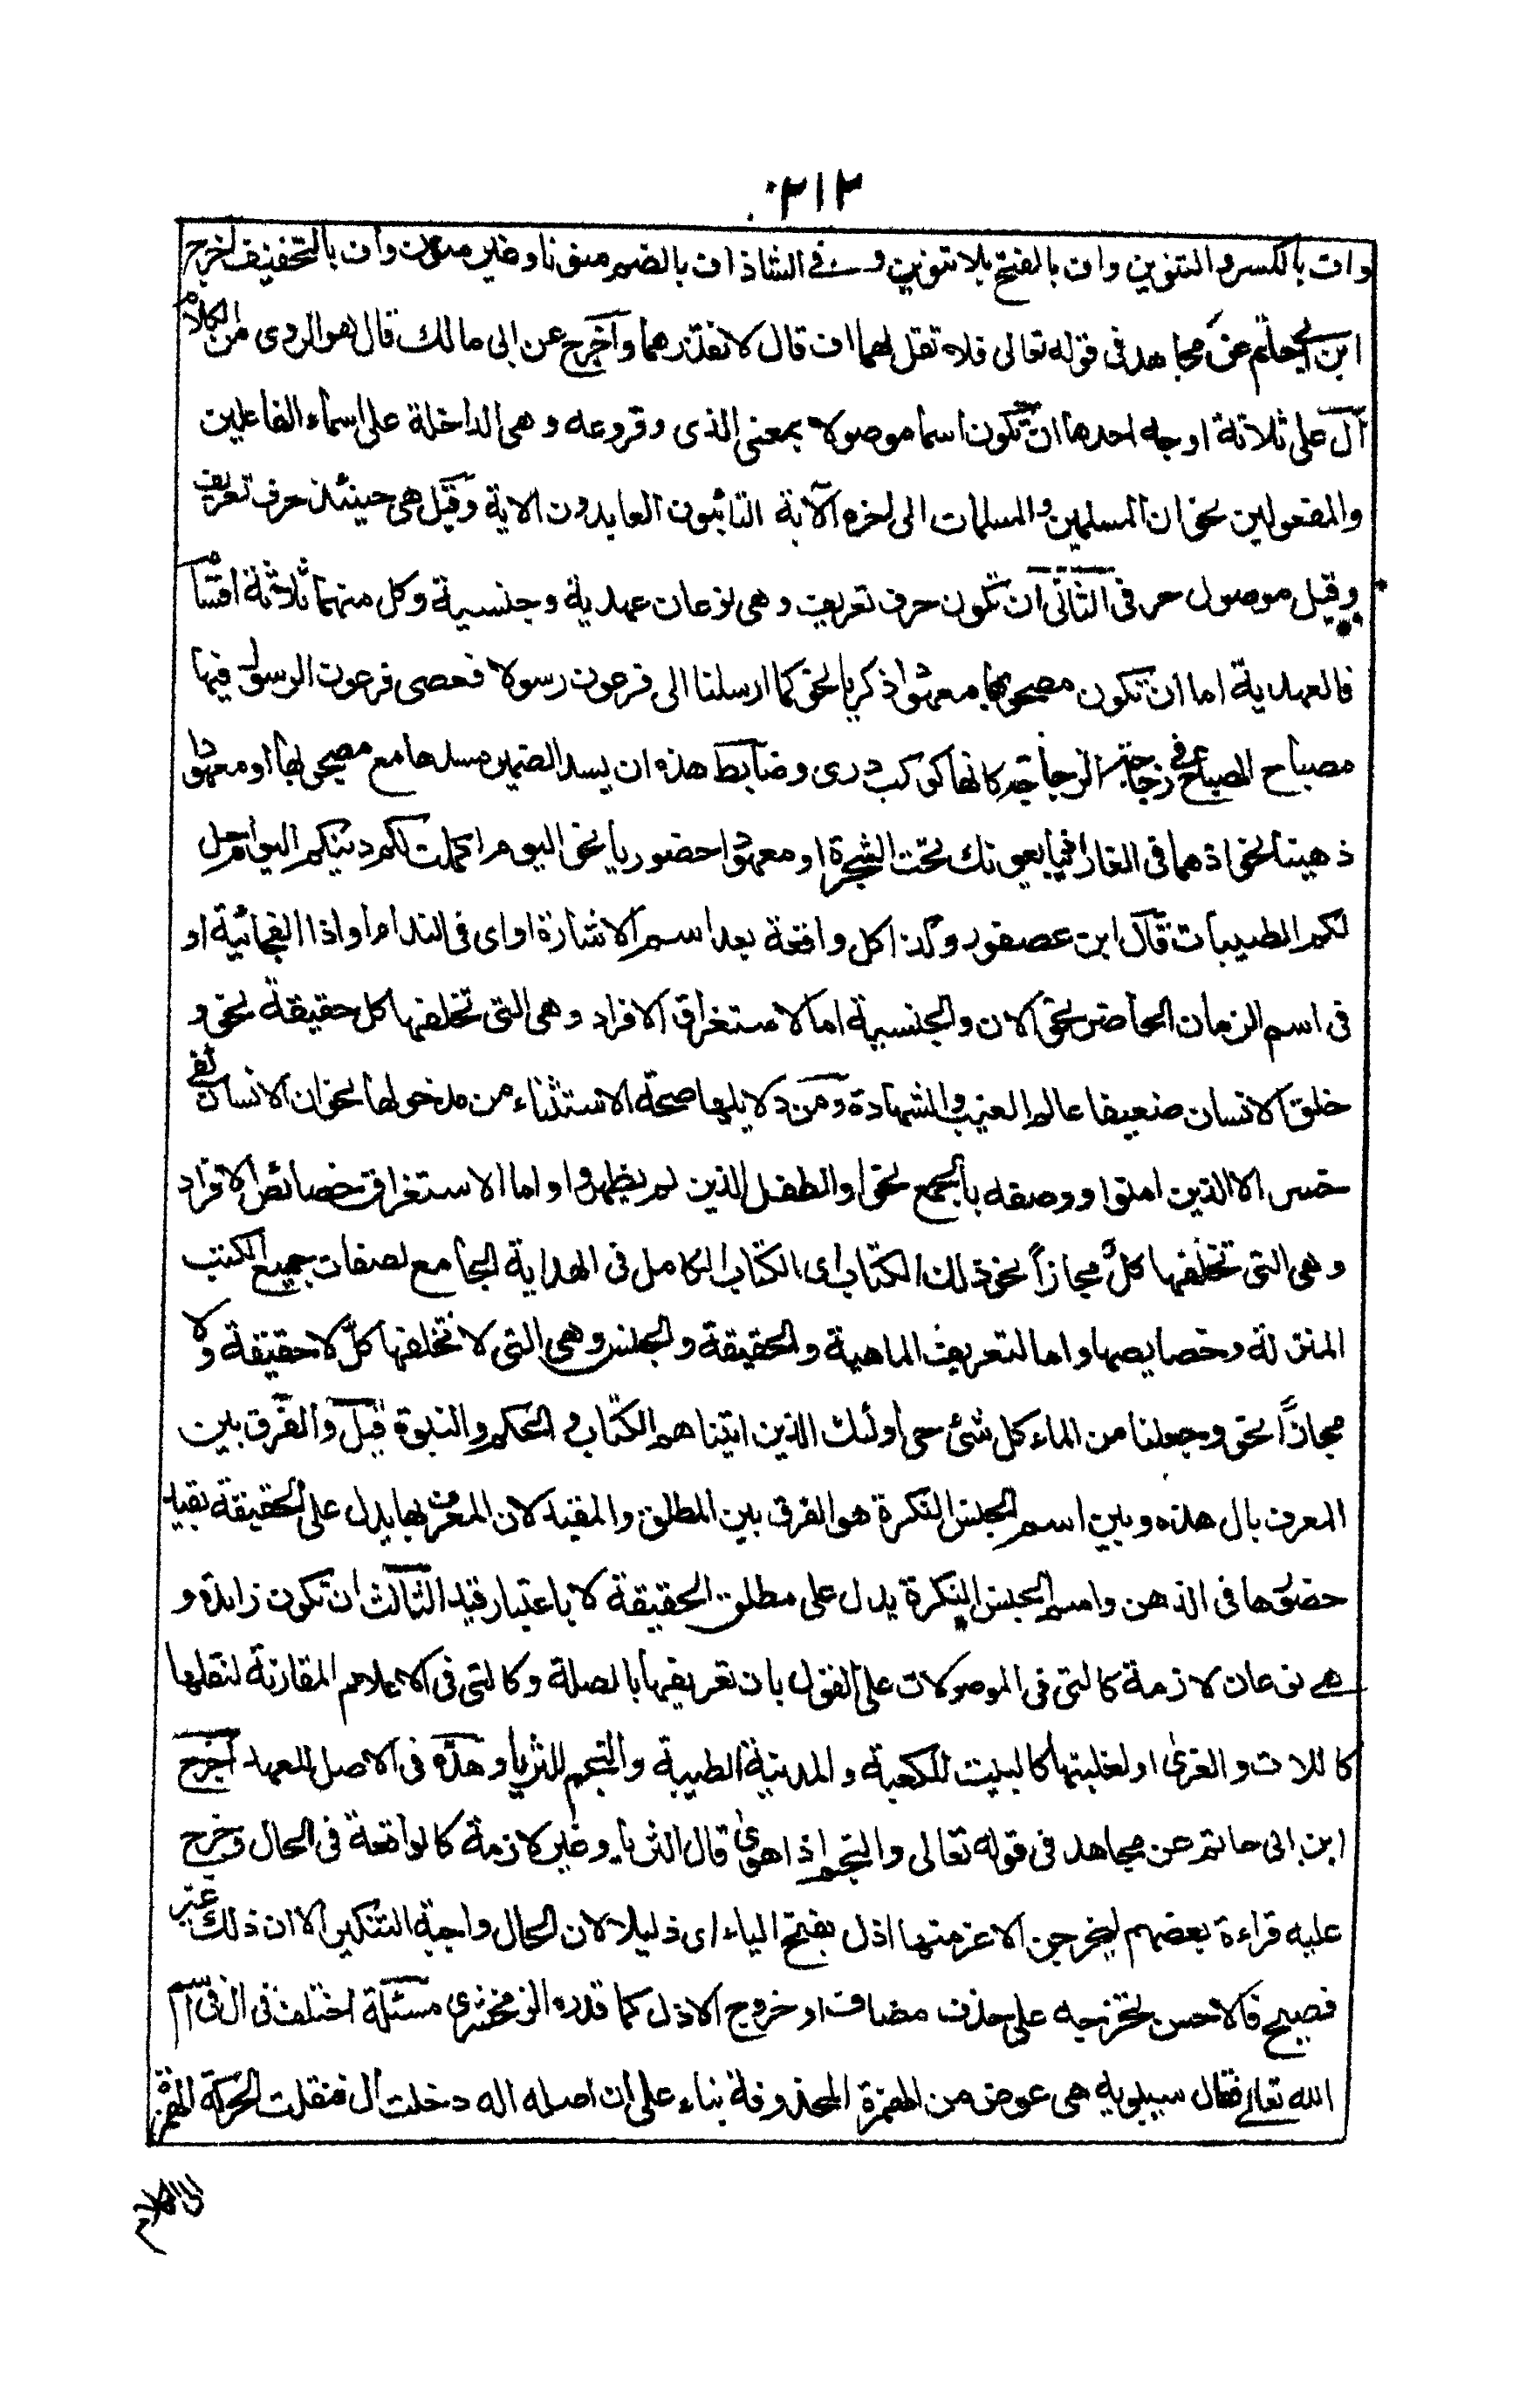 ٢١٢
واف بالكسر والتنوين واف بالفتح بلا تنوين و في الشاذ اف بالضم منونا وغير منون واف بالتخفيف اخرج
ابن ابي حاتم عن مجاهد في قوله تعالى فلا تقل لهما اف قال لا تقذرهما وآخرج عن ابي مالك قال هو الردى من الكلام
آل على ثلاثة اوجه احدها ان تكون اسما موصولا بمعنى الذى وفروعه وهي الداخلة على اسماء الفاعلين
والمفعولين نحو ان المسلمين والمسلمات الى اخره الآية التائبون العابدون الاية وقيل هي حينئذ حرف تعريف
وقيل موصول حرفى الثانى ان تكون حرف تعريف وهى نوعان عهدية وجنسية وكل منهما ثلاثة اقسام
فالعهدية اما ان تكون مصحوبها معهودا ذكريا نحو كما ارسلنا الى فرعون رسولا فعصى فرعون الرسول فيها
مصباح المصباح في زجاجة الزجاجة كانها كوكب درى وضابط هذه ان يسد الضمير مسدها مع مصحوبها او معهودا
ذهنيا نحو اذ هما في الغار اذ يبايعونك تحت الشجرة او معهودا حضوريا نحو اليوم اكملت لكم دينكم اليوم احل
لكم الطيبات قال ابن عصفور وكذا كل واقعة بعد اسم الاشارة او اى في النداء او اذا الفجائية او
في اسم الزمان الحاضر نحو الان والجنسية اما لاستغراق الافراد وهى التى تخلفها كل حقيقة نحو و
خلق الانسان ضعيفا عالم الغيب والشهادة ومن دلايلها صحة الاستثناء من مدخولها نحو ان الانسان لفى
خسر الا الذين امنوا ووصفه بالجمع نحو او الطفل الذين لم يظهروا واما الاستغراق خصائص الافراد
وهى التى تخلفها كل مجازاً نحو ذلك الكتاب اى الكتاب الكامل في الهداية الجامع لصفات جميع الكتب
المنزلة وخصايصها واما لتعريف الماهية والحقيقة والجنس وهى التى لا تخلفها كل لا حقيقة ولا
مجازاً نحو وجعلنا من الماء كل شئ حي أولئك الذين اتيناهم الكتاب و الحكم والنبوة قيل والفرق بين
المعرف بال هذه وبين اسم الجنس النكرة هو الفرق بين المطلق والمقيد لان المعرف بها يدل على الحقيقة بقيد
حضورها في الذهن واسم الجنس النكرة يدل على مطلق الحقيقة لا باعتبار قيد الثالث ان تكون زايدة و
هى نوعان لازمة كالتى في الموصولات على القول بان تعريفها بالصلة وكالتى في الاعلام المقارنة لنقلها
كاللات والعزى او لغلبتها كالبيت للكعبة والمدينة الطيبة والنجم للثريا وهذه في الاصل للعهد اخرج
ابن ابى حاتم عن مجاهد في قوله تعالى والنجم اذا هوى قال الثريا وغير لازمة كالواقعة في الحال وخرج
عليه قراءة بعضهم ليخرجن الاعز منها الاذل بفتح الياء اى ذليلا لان الحال واجبة التنكير الا ان ذلك غير
فصيح فالاحسن تخريجه على حذف مضاف او خروج الاذل كما قدره الزمخشرى مسئلة اختلف في ال في اسم
الله تعالى فقال سيبويه هى عوض من الهمزة المحذوفة بناء على ان اصله اله دخلت ال فنقلت الحركة